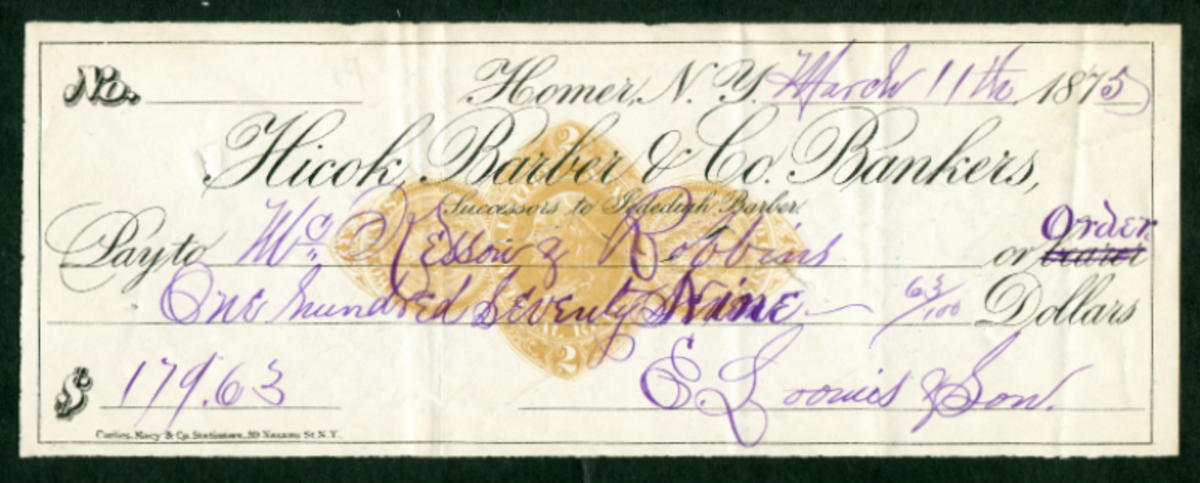 No. Homer, N. Y. March 11th 1875
Hicok, Barber & Co. Bankers,
Successors to Jedediah Barber.
Pay to Mc Kesson & Robbins or bearer Order
One hundred Seventy Nine 63/100 Dollars
$ 179.63 E. Loomis & Son.
Corlies, Macy & Co. Stationers, 39 Nassau St. N.Y.
2
2